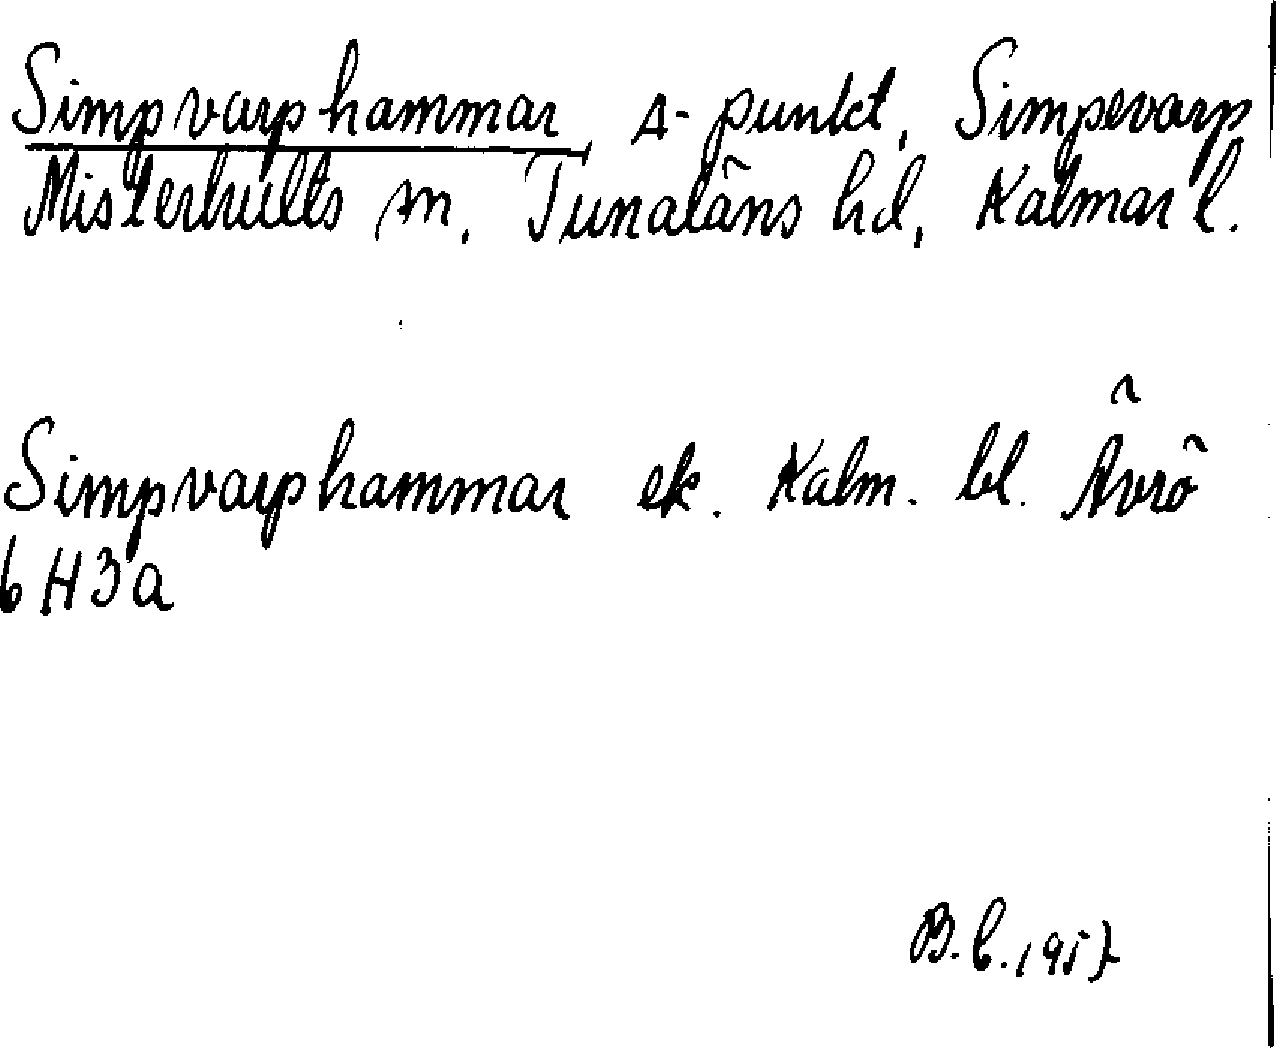 Simpvarphammar, Δ-punkt, Simpevarp
Misterhults sn, Tunaläns hd, Kalmar l.
Simpvarphammar ek. Kalm. bl. Ävrö
6H3a
B.C. 1957